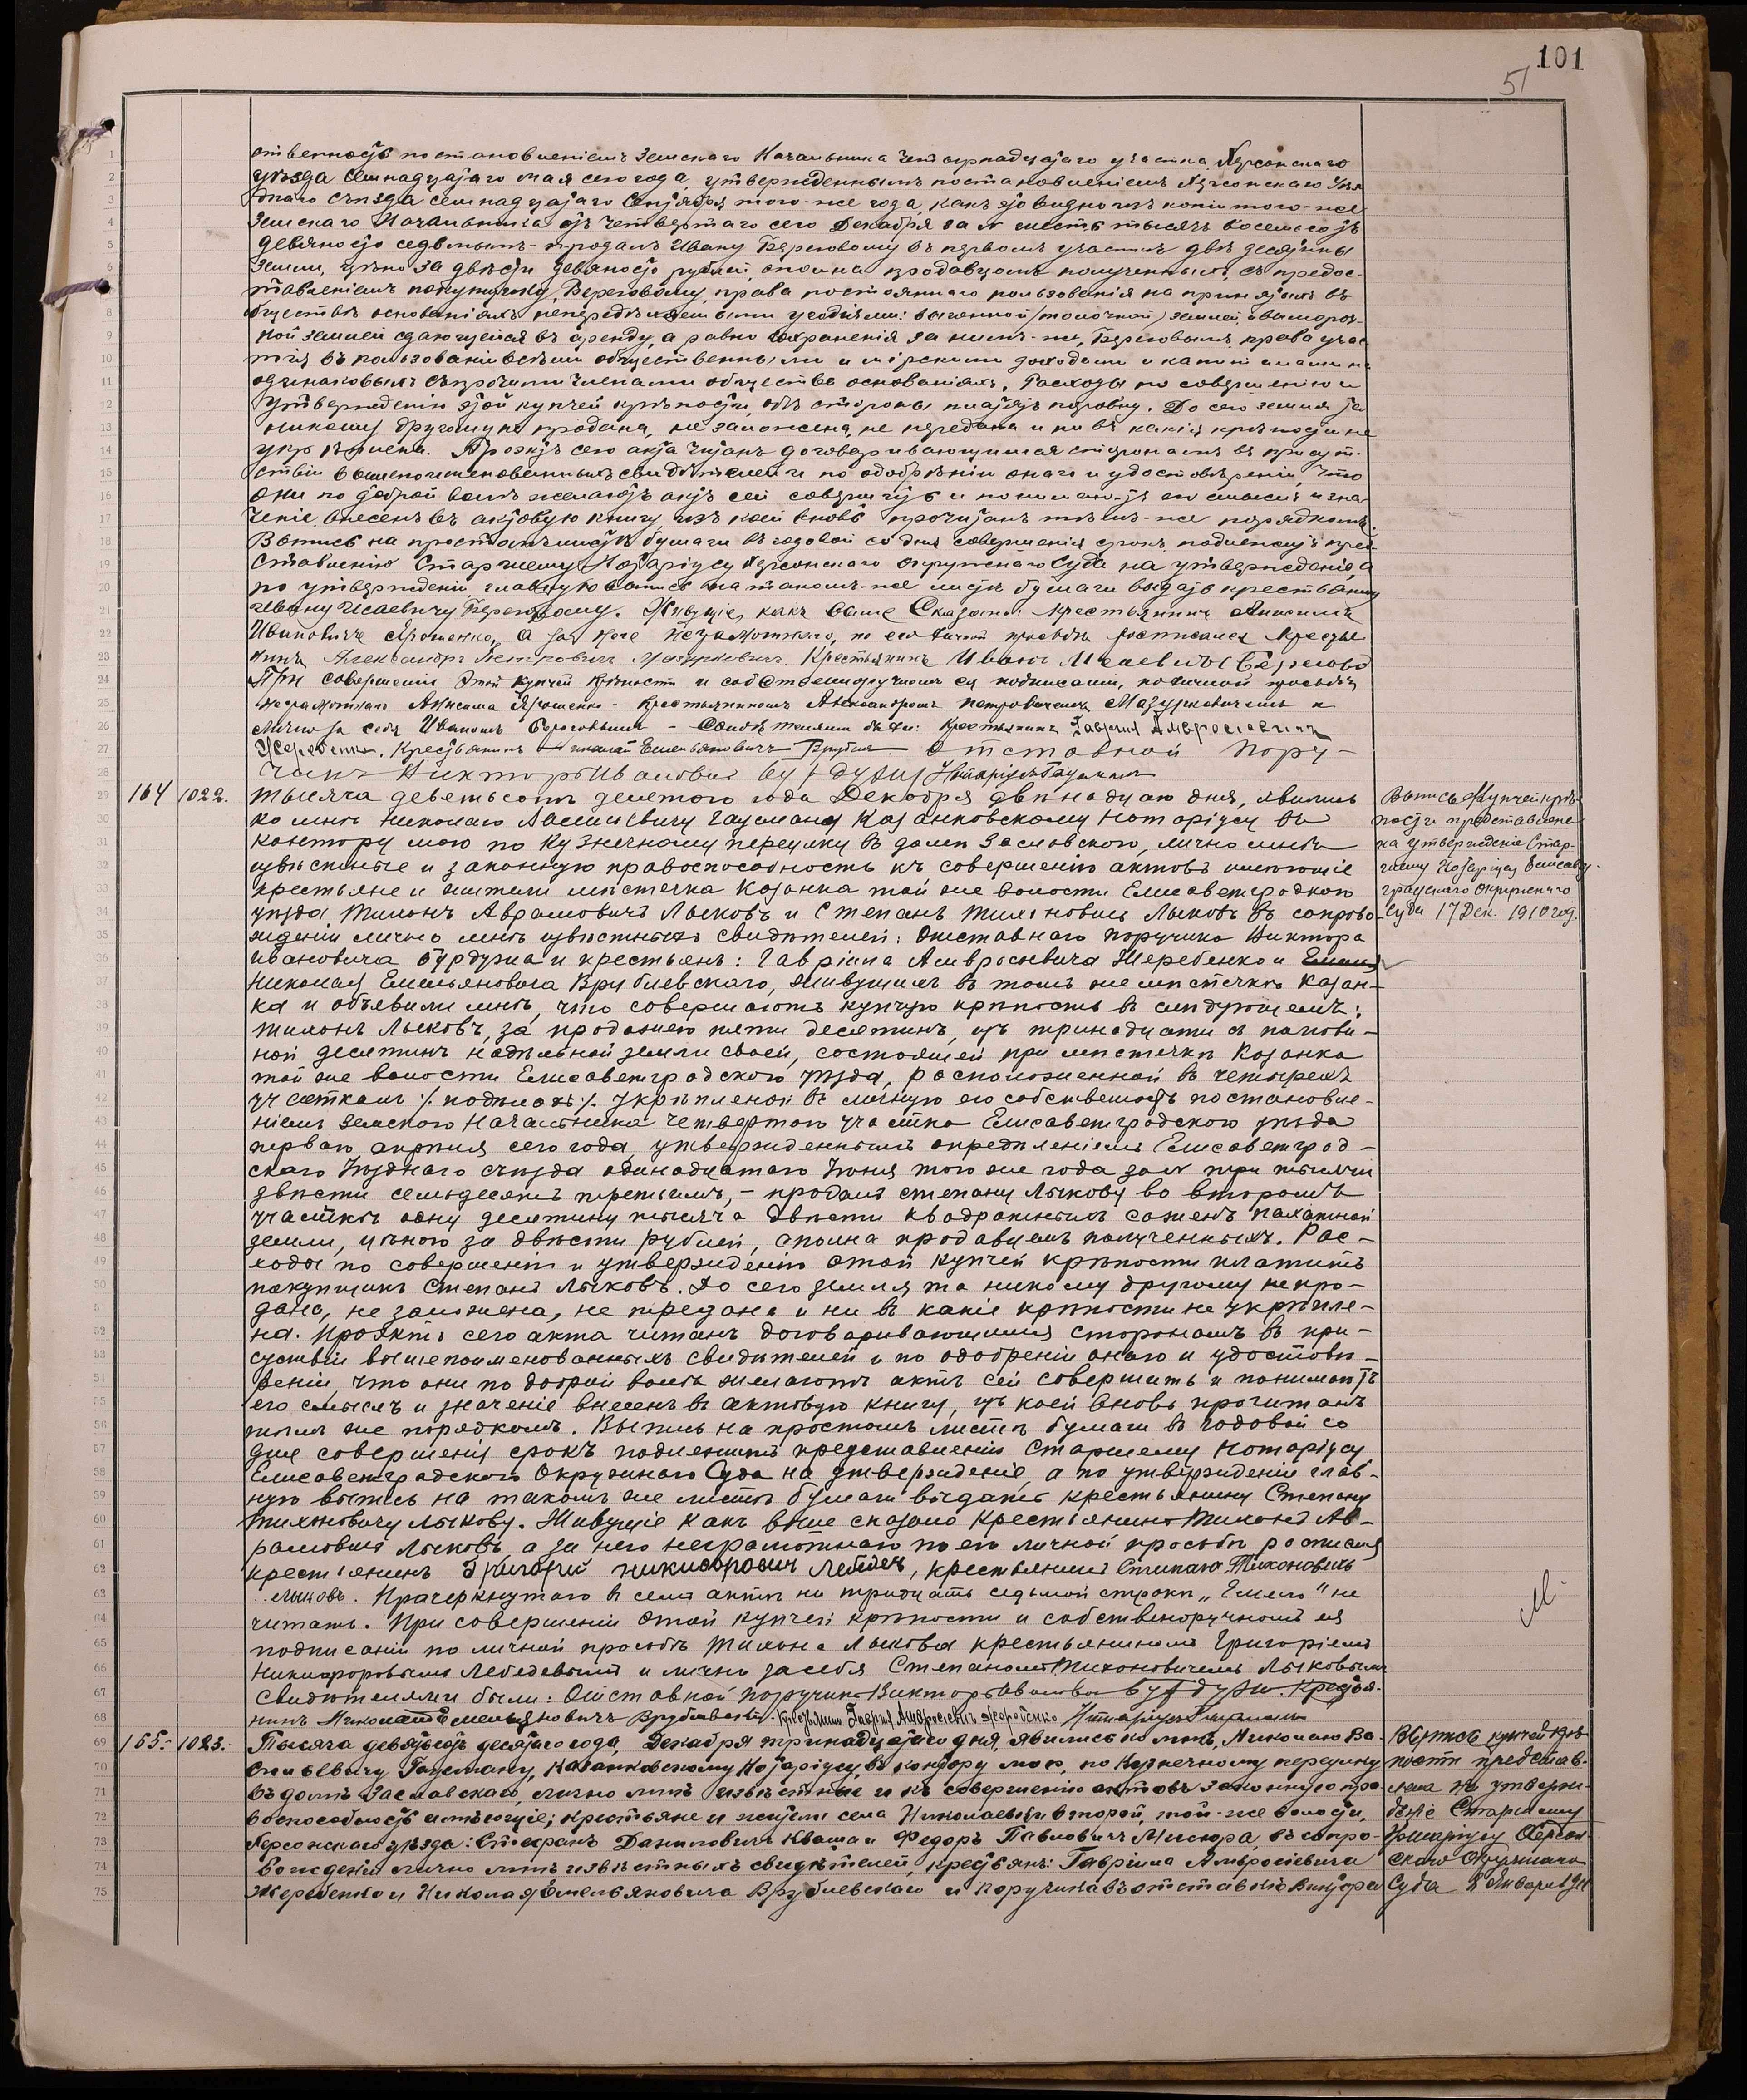 101
51
ственность постановленіемъ Земскаго Начальника Четырнадцатаго участка Херсонскаго
уѣзда Семнадцатаго мая сего года, утвержденнымъ постановленіемъ Херсонскаго Уѣз
днаго съѣзда семнадцатаго Сентября того-же года, какъ это видно изъ копіи того-же
Земскаго Начальника отъ Четвертаго сего Декабря за № шесть тысячъ восемьсотъ
девяносто седьмымъ - продалъ Ивану Береговому въ первомъ участкѣ двѣ десятины
земли, цѣною за двѣсти девяносто рублей, сполна продавцомъ полученныхъ, съ предос-
тавленіемъ покупщику, Береговому, права постояннаго пользованія на принятыхъ въ
обществѣ основаніяхъ непередѣляемыми угодьями: выгонной /толочной/ землей,
ной землей сдающейся въ аренду, а равно сохраненія за нимъ-же, Береговымъ, права учас
тія въ пользованіи всѣми общественными и мірскими доходами и капиталами на
одинаковыхъ съ прочими членами общества основаніяхъ. Расходы по совершенію и
утвержденію этой купчей крѣпости, обѣ стороны платятъ поровну. До сего земля та
никому другому не продана, не заложена, не передана и ни въ какія крѣпости не
укрѣплена. Проэктъ сего акта читанъ договаривающимся сторонамъ въ присут-
ствіи вышепоименованныхъ свидѣтелей и по одобреніи онаго и удостовѣреніи, что
они по доброй волѣ желаютъ актъ сей совершить и понимаютъ его смыслъ и зна
ченіе, внесенъ въ актовую книгу, изъ коей вновь прочитанъ тѣмъ-же порядкомъ.
Выпись на простомъ листѣ бумаги въ годовой со дня совершенія срокъ, подлежитъ пред
ставленію Старшему Нотаріусу Херсонскаго Окружнаго Суда на утвержденіе, а
по утвержденіи главную выпись на такомъ-же листѣ бумаги выдать крестьянину
Ивану Исаевичу Береговому. Живущіе, какъ выше сказано. Крестьянинъ Анисимъ
Ивановичъ Ярошенко, а за него неграмотнаго, по его личной просьбѣ росписался крестья
нинъ Александръ Петровичъ Мазуркевичъ. Крестьянинъ Иванъ Исаевичъ Береговой
При совершеніи этой купчей крѣпости и собственноручномъ ея подписаніи, по личной просьбѣ
неграмотнаго Анисима Ярошенко - крестьяниномъ Александромъ Петровичемъ Мазуркевичемъ и
лично за себя Иваномъ Береговымъ - Свидѣтелями были: Крестьянинъ Гавріилъ Амвросіевичъ
Жеребенко. Крестьянинъ Николай Емельяновичъ Врублев. Отставной пору-
чикъ Викторъ Ивановичъ Бурдузи Нотаріусъ Гаусманъ
164 1022. Тысяча девятьсотъ десятого года Декабря двѣнадцаго дня, явились
ко мнѣ Николаю Василіевичу Гаусману Казанковскому Нотаріусу въ
контору мою по Кузнечному переулку въ домѣ Заславского, лично мнѣ
извѣстные и законную правоспособность къ совершенію актовъ имѣющіе
крестьяне и жители мѣстечка Казанка той же волости Елисаветградского
уѣзда Тихонъ Аврамовичъ Лысковъ и Степанъ Тихоновичъ Лысковъ въ сопрово-
жденіи лично мнѣ извѣстныхъ свидѣтелей: Отставного поручика Виктора
Ивановича Бурдузиа и крестьянъ: Гавріила Амвросіевича Жеребенко и Емель
Николая Емельяновича Врублевскаго, живущихъ въ томъ же мѣстечкѣ Казан-
ка и объявили мнѣ, что совершаютъ купчую крѣпость въ слѣдующемъ:
Тихонъ Лысковъ, за продажею пяти десятинъ, изъ тринадцати съ полови-
ной десятинъ надѣльной земли своей, состоящей при мѣстечкѣ Казанка
той же волости Елисаветградского уѣзда, расположенной въ четырехъ
участкахъ укрѣпленой въ личную его собственость постановле-
ніемъ Земского Начальника Четвертого участка Елисаветградского уѣзда
первого апрѣля сего года, утвержденнымъ опредѣленіемъ Елисаветград-
скаго Уѣзднаго съѣзда одинадцатаго Іюня того же года за № три тысячи
двѣсти семьдесятъ третьимъ, - продалъ Степану Лыскову во второмъ
участкѣ одну десятину тысяча двѣсти квадратныхъ саженъ пахатной
земли, цѣною за двѣсти рублей, сполна продавцемъ полученныхъ. Рас-
ходы по совершенію и утвержденію этой купчей крѣпости платитъ
покупщикъ Степанъ Лысковъ. До сего земля та никому другому не про-
дана, не заложена, не предана и ни въ какіе крѣпости не укрѣпле-
на. Проэктъ сего акта читанъ договаривающимся сторонамъ въ при-
суствіи вышепоименованныхъ свидѣтелей и по одобреніи онаго и удостовѣ-
реніи, что они по доброй волѣ желаютъ актъ сей совершить и понимаютъ
его смыслъ и значеніе внесенъ въ актовую книгу, изъ коей вновь прочитанъ
тѣмъ же порядкомъ. Выпись на простомъ листѣ бумаги въ годовой со
дня совершенія срокъ подлежитъ представленію Старшему Нотаріусу
Елисаветградского Окружнаго Суда на утвержденіе, а по утвержденіи глав-
ную выпись на такомъ же листѣ бумаги выдать крестьянину Степану
Тихоновичу Лыскову. Живущіе какъ выше сказано Крестьянинъ Тихонъ Ав-
рамовичъ Лысковъ, а за него неграмотнаго по его личной просьбѣ росписался
крестьянинъ Григорій Никифорович Лебедев, крестьянинъ Степанъ Тихоновичъ
Лысковъ. Прачеркнутаго въ семъ актѣ на тридцать седьмой строкѣ „Емель" не
читать. При совершеніи этой купчей крѣпости и собственоручномъ ея
подписаніи по личной просьбѣ Тихона Лыскова крестьяниномъ Григоріемъ
Никифоровымъ Лебедевымъ и лично за себя Степаномъ Тихоновичемъ Лысковымъ
Свидѣтелями были: Отставной поручикъ Викторъ Ивановичъ Бурдузи. Крестья-
нинъ Николай Емельяновичъ Врублевскій. Крестьянинъ Гавріил Амвросіевич Жеребенко Нотаріусъ Гаусманъ
165. 1023. Тысяча девятьсотъ десятаго года, Декабря тринадцатаго дня, явились ко мнѣ, Николаю Ва-
сильевичу Гаусману, Казанковскому Нотаріусу, въ контору мою, по Кузнечному переулку
въ домѣ Заславскаго, лично мнѣ извѣстные и къ совершенію актовъ законную пра-
воспособность имѣющіе; крестьяне и жители села Николаевки второй, той-же волости,
Херсонскаго уѣзда: Стефанъ Даниловичъ Кваша и Федоръ Павловичъ Мисюра, въ сопро-
вожденіи лично мнѣ извѣстныхъ свидѣтелей, крестьянъ: Гавріила Амвросіевича
Жеребенко и Николая Емельяновича Врублевскаго и Поручика въ отставкѣ Виктора
Выпись Купчей крѣ-
пости представлена
на утвержденіе Стар-
шему Нотаріусу Елисавет-
градскаго Окружнаго
Суда 17 Дек. 1910 год.
Выпись купчей крѣ-
пости представ-
лена на утверж-
деніе Старшему
Нотаріусу Херсон-
скаго Окружнаго
Суда